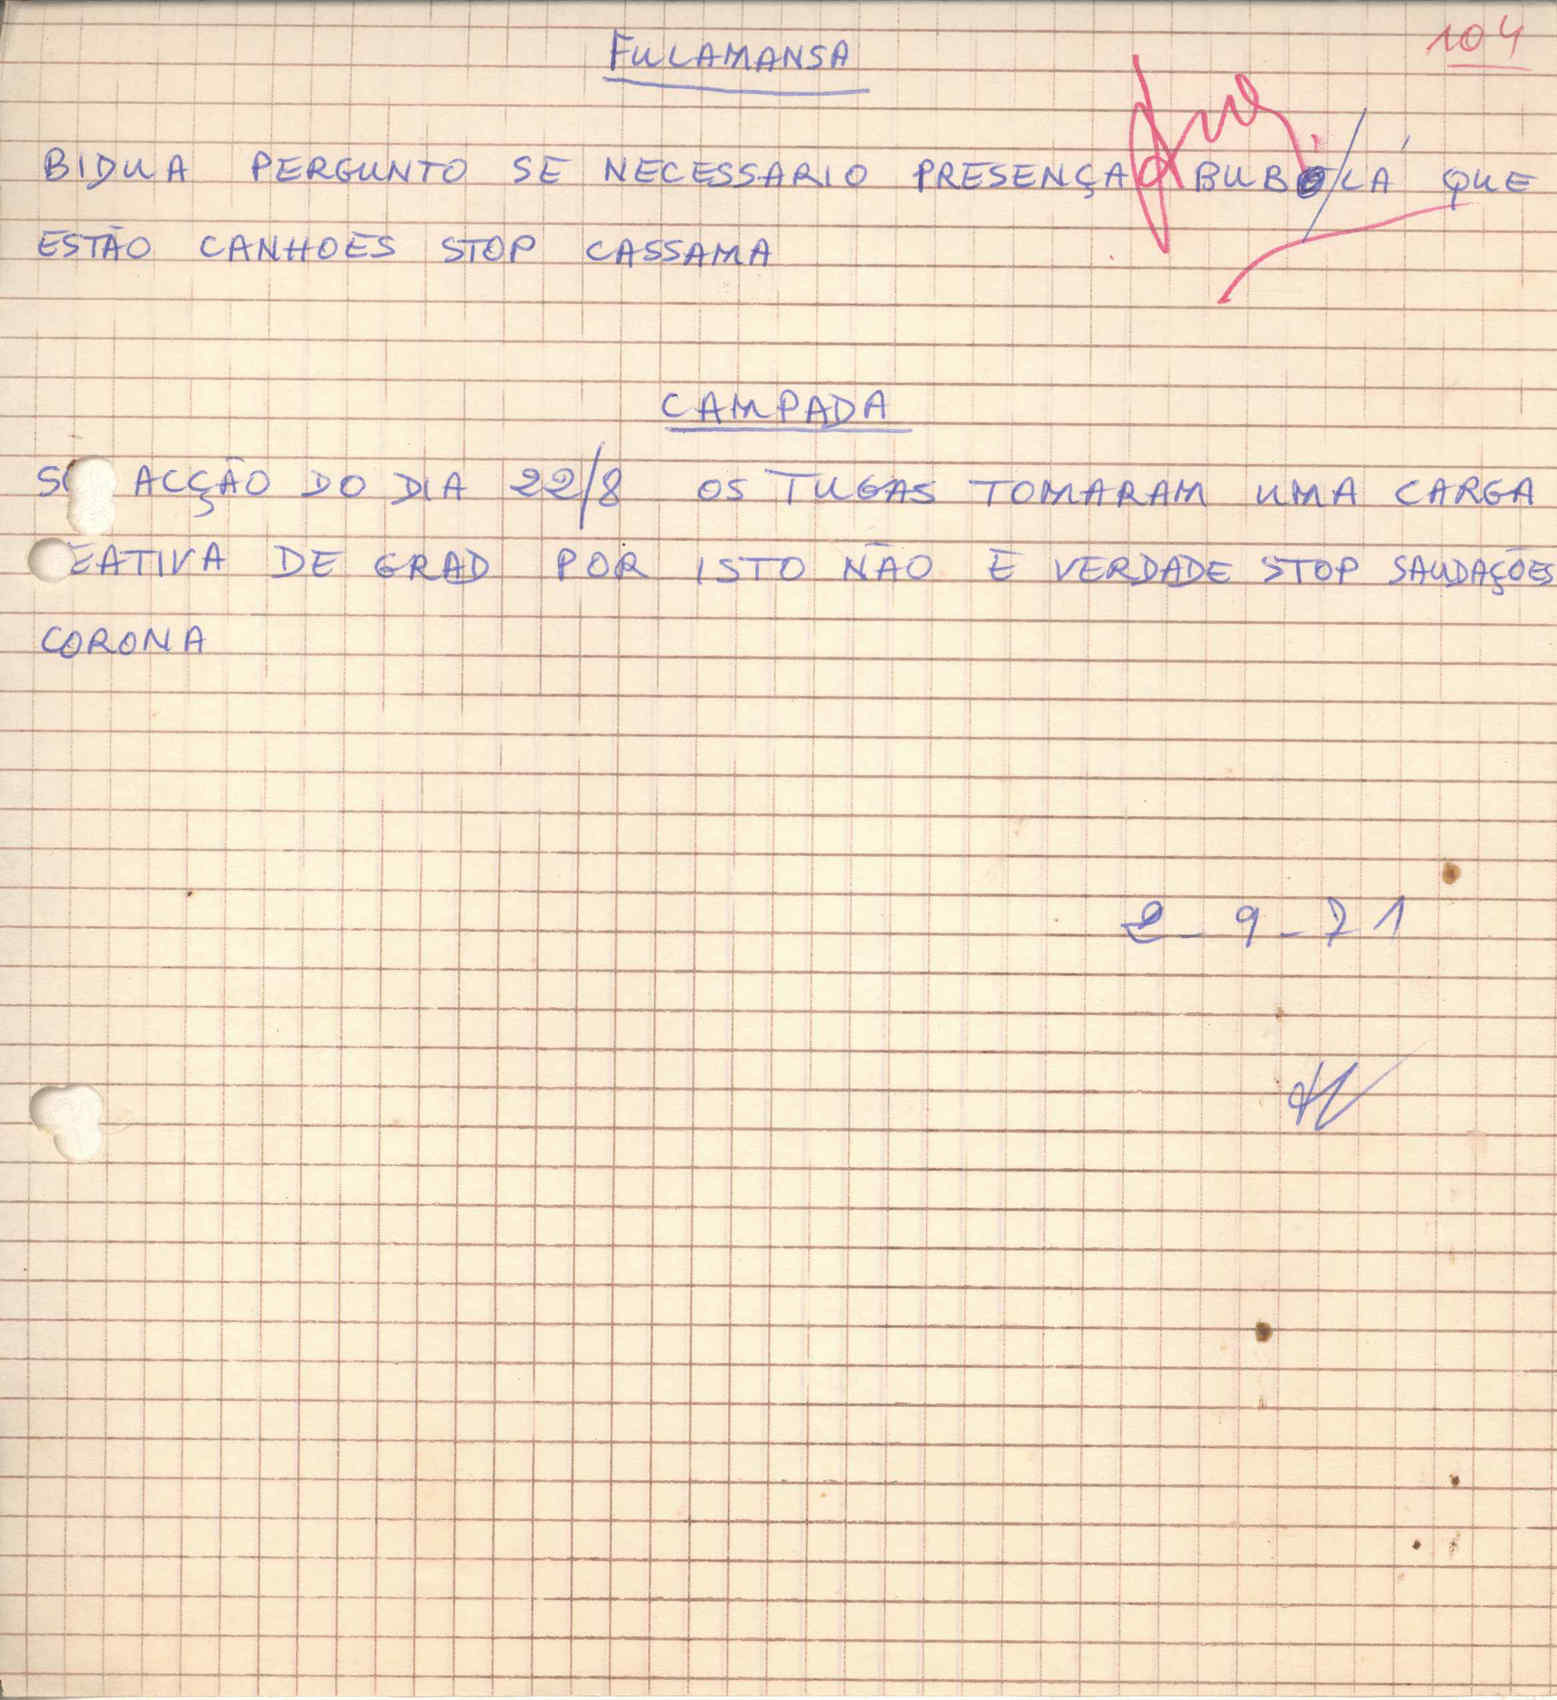 104
FULAMANSA
BIDUA PERGUNTO SE NECESSARIO PRESENÇA BUBO/LÁ QUE
ESTÃO CANHOES STOP CASSAMA
CAMPADA
ACÇÃO DO DIA 22/8 OS TUGAS TOMARAM UMA CARGA
EATIVA DE GRAD POR ISTO NÃO E VERDADE STOP SAUDAÇÕES
CORONA
2-9-71